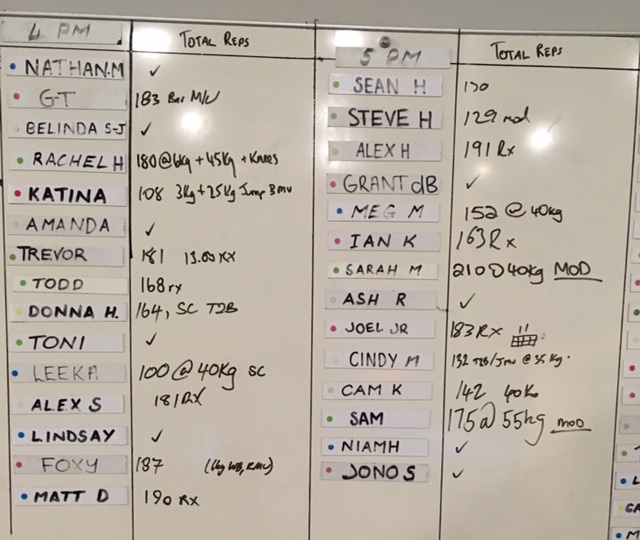 4 PM TOTAL REPS
NATHAN.M ✓
GT 183 Bar M/U
BELINDA S-J ✓
RACHEL H 180 @ 6kg + 45kg + Knees
KATINA 108 3kg + 25kg Jump B mu
AMANDA ✓
TREVOR 181
TODD 168 rx
DONNA H. 164, SC T2B
TONI ✓
LEEKA 100 @ 40kg SC
ALEX S 181 RX
LINDSAY ✓
FOXY 187
MATT D 190 RX
5 PM TOTAL REPS
SEAN H
STEVE H 129 md
ALEX H 191 Rx
GRANT dB ✓
MEG M 152 @ 40kg
IAN K 163 Rx
SARAH M 210 @ 40kg MOD
ASH R ✓
JOEL JR 183 RX
CINDY M 132 @ 35 kg.
CAM K 142
SAM 175 @ 55kg MOD
NIAMH ✓
JONO S ✓